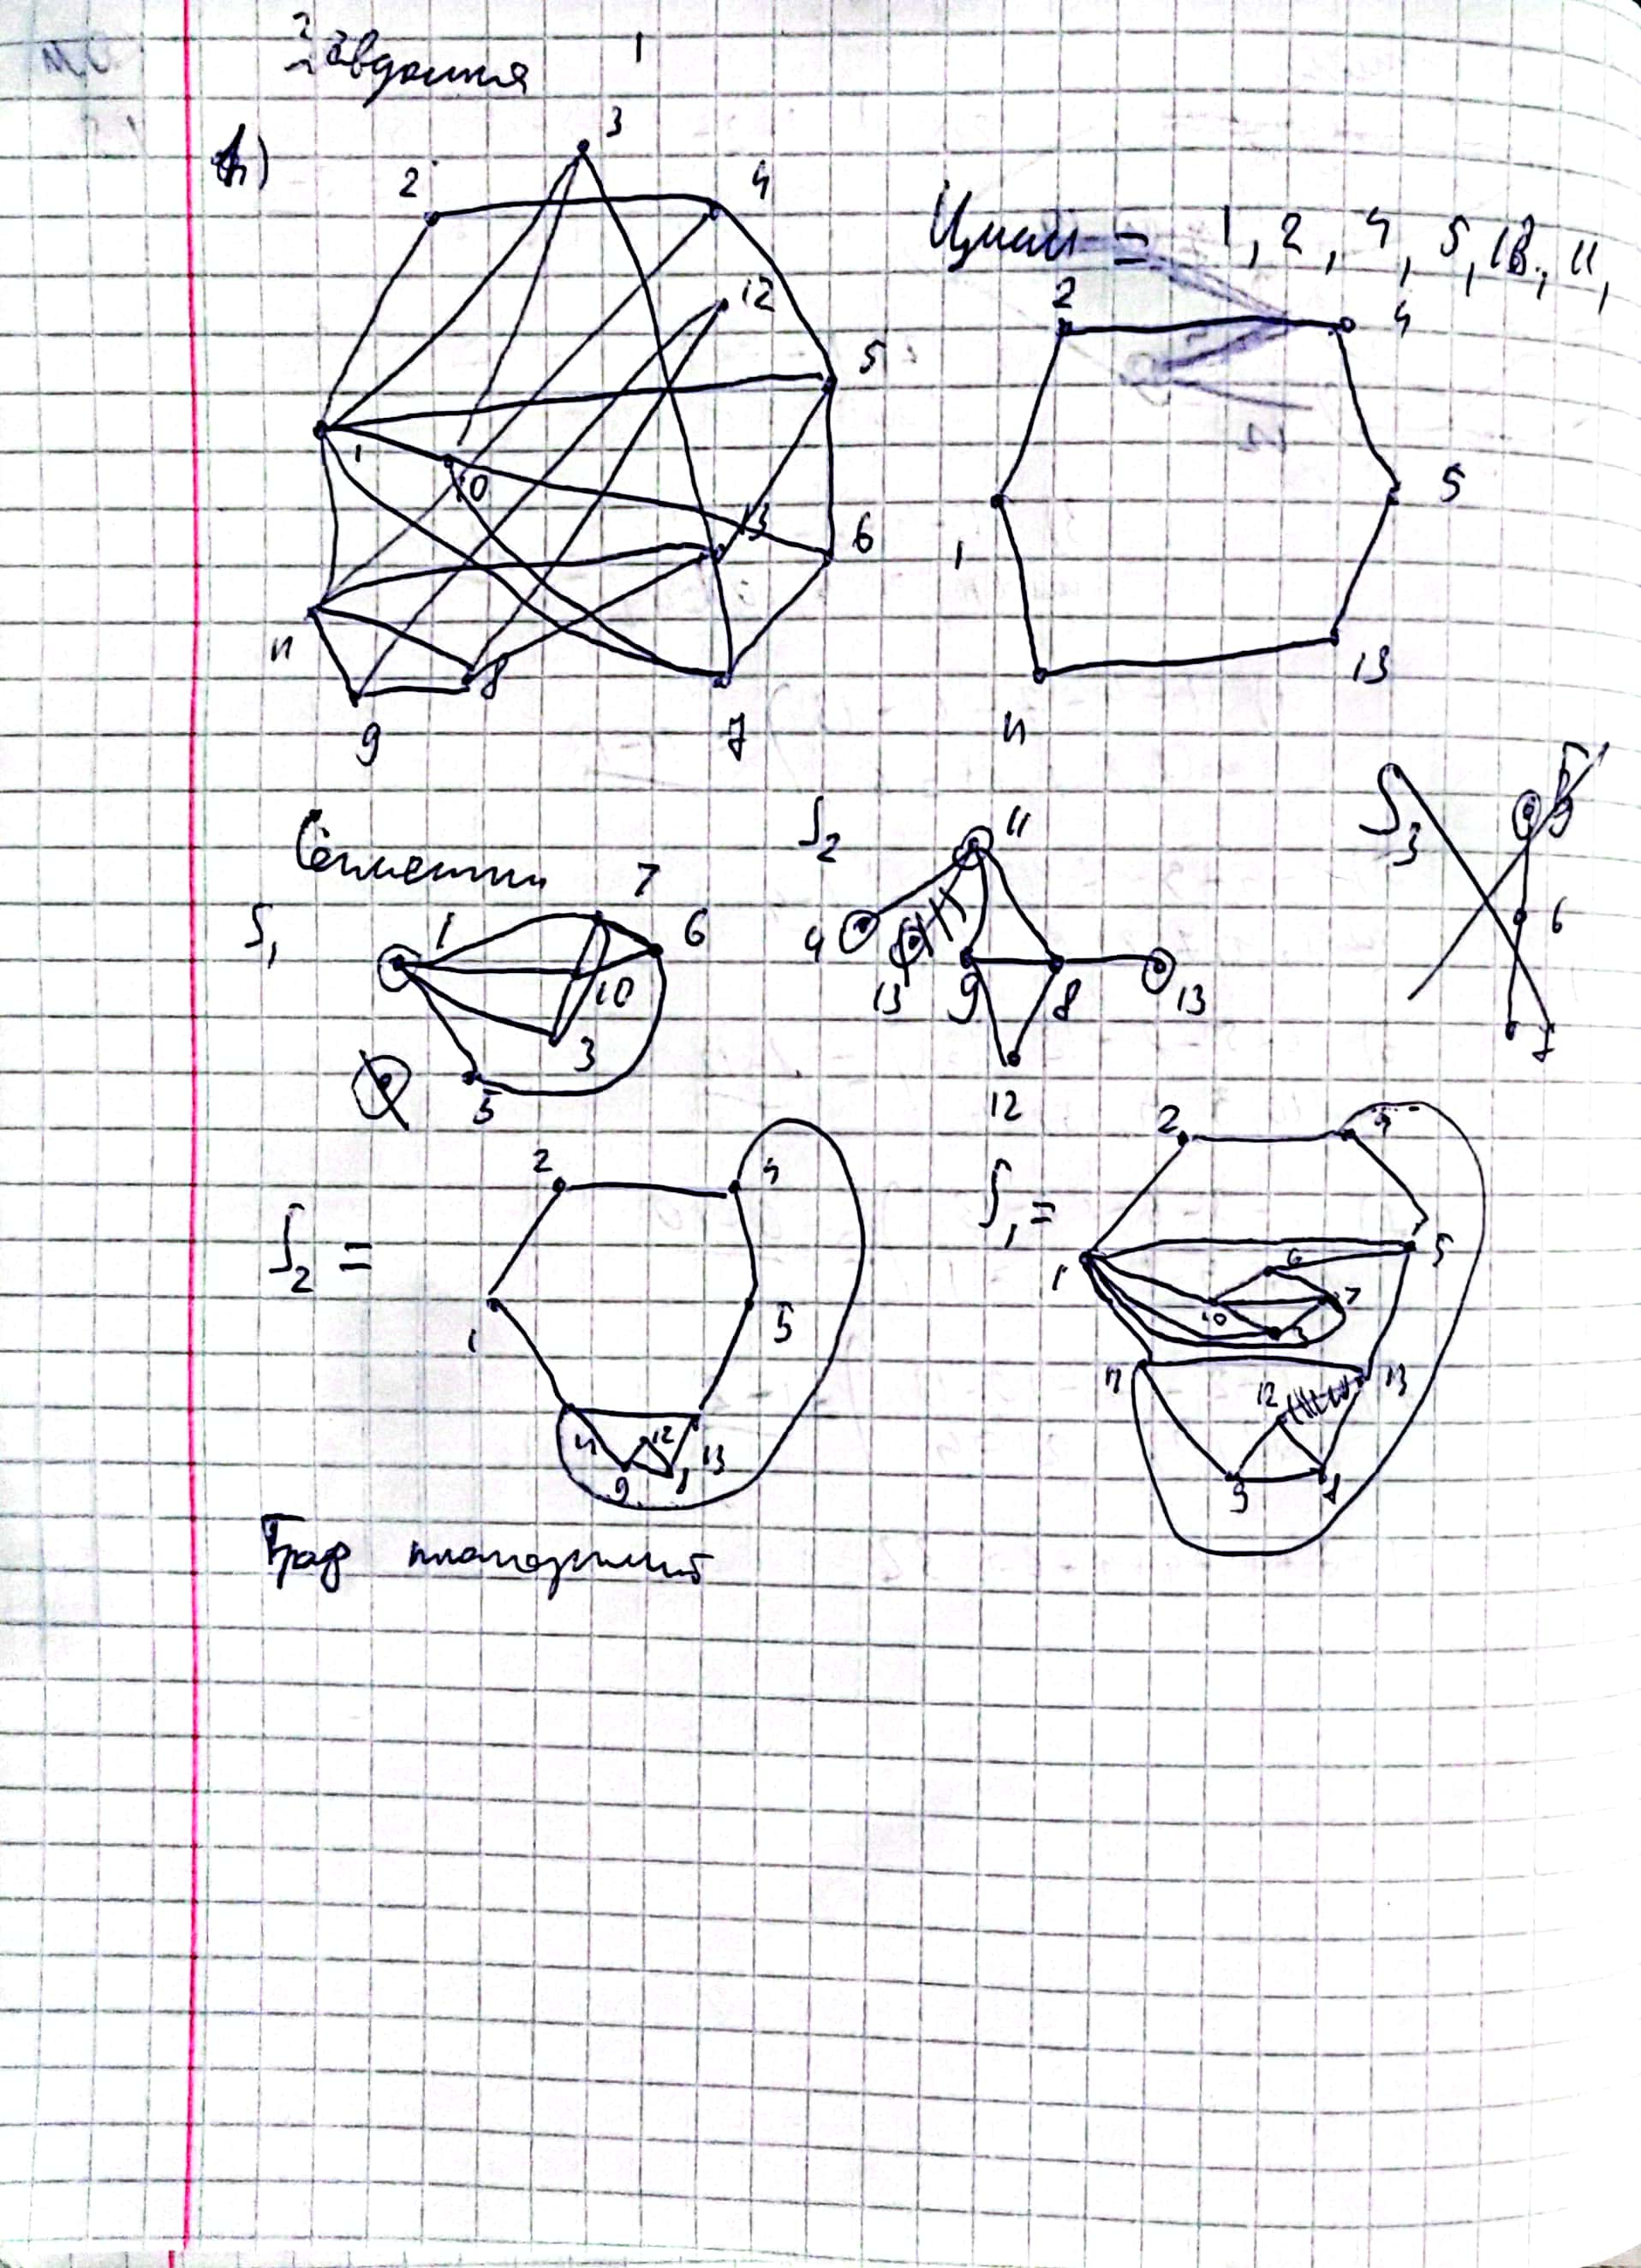 Завдання 1
А)
3
2
4
12
5
1
10
13
6
11
8
9
7
Цикл = 1, 2, 4, 5, 13, 11,
2
4
5
1
13
11
Сегменти
S1
1
7
6
10
3
5
S2
11
4
13
9
8
13
12
S3
5
6
7
S2 =
2
4
1
5
11
12
13
9
8
S1 =
2
4
1
5
6
7
10
3
11
12
13
9
8
Граф планарний